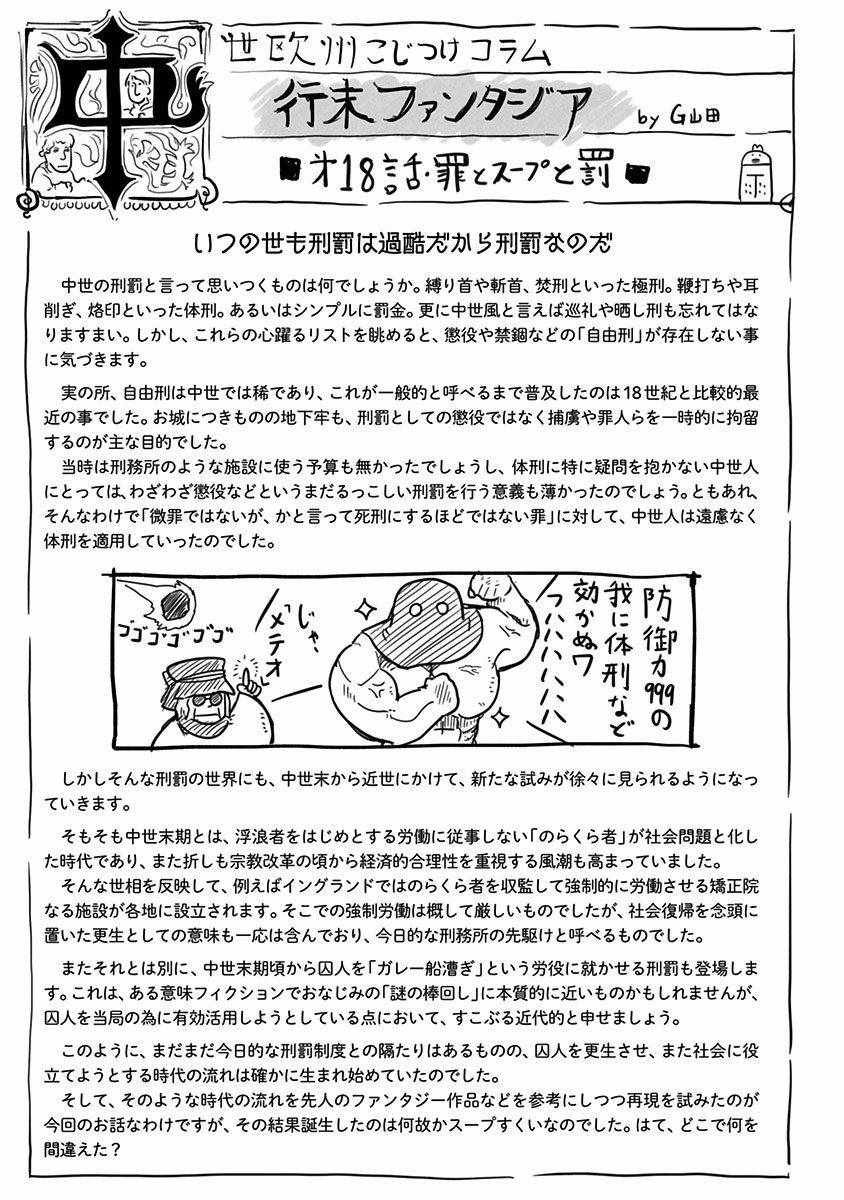 中世欧州こじつけコラム
行末ファンタジア
by G山田
■才18話・罪とスープと罰■
いつの世も刑罰は過酷だから刑罰なのだ
中世の刑罰と言って思いつくものは何でしょうか。縛り首や斬首、焚刑といった極刑。鞭打ちや耳
削ぎ、烙印といった体刑。あるいはシンプルに罰金。更に中世風と言えば巡礼や晒し刑も忘れてはな
りますまい。しかし、これらの心躍るリストを眺めると、懲役や禁錮などの「自由刑」が存在しない事
に気づきます。
実の所、自由刑は中世では稀であり、これが一般的と呼べるまで普及したのは18世紀と比較的最
近の事でした。お城につきものの地下牢も、刑罰としての懲役ではなく捕虜や罪人らを一時的に拘留
するのが主な目的でした。
当時は刑務所のような施設に使う予算も無かったでしょうし、体刑に特に疑問を抱かない中世人
にとっては、わざわざ懲役などというまだるっこしい刑罰を行う意義も薄かったのでしょう。ともあれ、
そんなわけで「微罪ではないが、かと言って死刑にするほどではない罪」に対して、中世人は遠慮なく
体刑を適用していったのでした。
防御力999の
我に体刑など
効かぬワ
フハハハハハハ
じゃ、
「メテオ」
ゴゴゴゴゴゴ
しかしそんな刑罰の世界にも、中世末から近世にかけて、新たな試みが徐々に見られるようになっ
ていきます。
そもそも中世末期とは、浮浪者をはじめとする労働に従事しない「のらくら者」が社会問題と化し
た時代であり、また折しも宗教改革の頃から経済的合理性を重視する風潮も高まっていました。
そんな世相を反映して、例えばイングランドではのらくら者を収監して強制的に労働させる矯正院
なる施設が各地に設立されます。そこでの強制労働は概して厳しいものでしたが、社会復帰を念頭に
置いた更生としての意味も一応は含んでおり、今日的な刑務所の先駆けと呼べるものでした。
またそれとは別に、中世末期頃から囚人を「ガレー船漕ぎ」という労役に就かせる刑罰も登場しま
す。これは、ある意味フィクションでおなじみの「謎の棒回し」に本質的に近いものかもしれませんが、
囚人を当局の為に有効活用しようとしている点において、すこぶる近代的と申せましょう。
このように、まだまだ今日的な刑罰制度との隔たりはあるものの、囚人を更生させ、また社会に役
立てようとする時代の流れは確かに生まれ始めていたのでした。
そして、そのような時代の流れを先人のファンタジー作品などを参考にしつつ再現を試みたのが
今回のお話なわけですが、その結果誕生したのは何故かスープすくいなのでした。はて、どこで何を
間違えた？